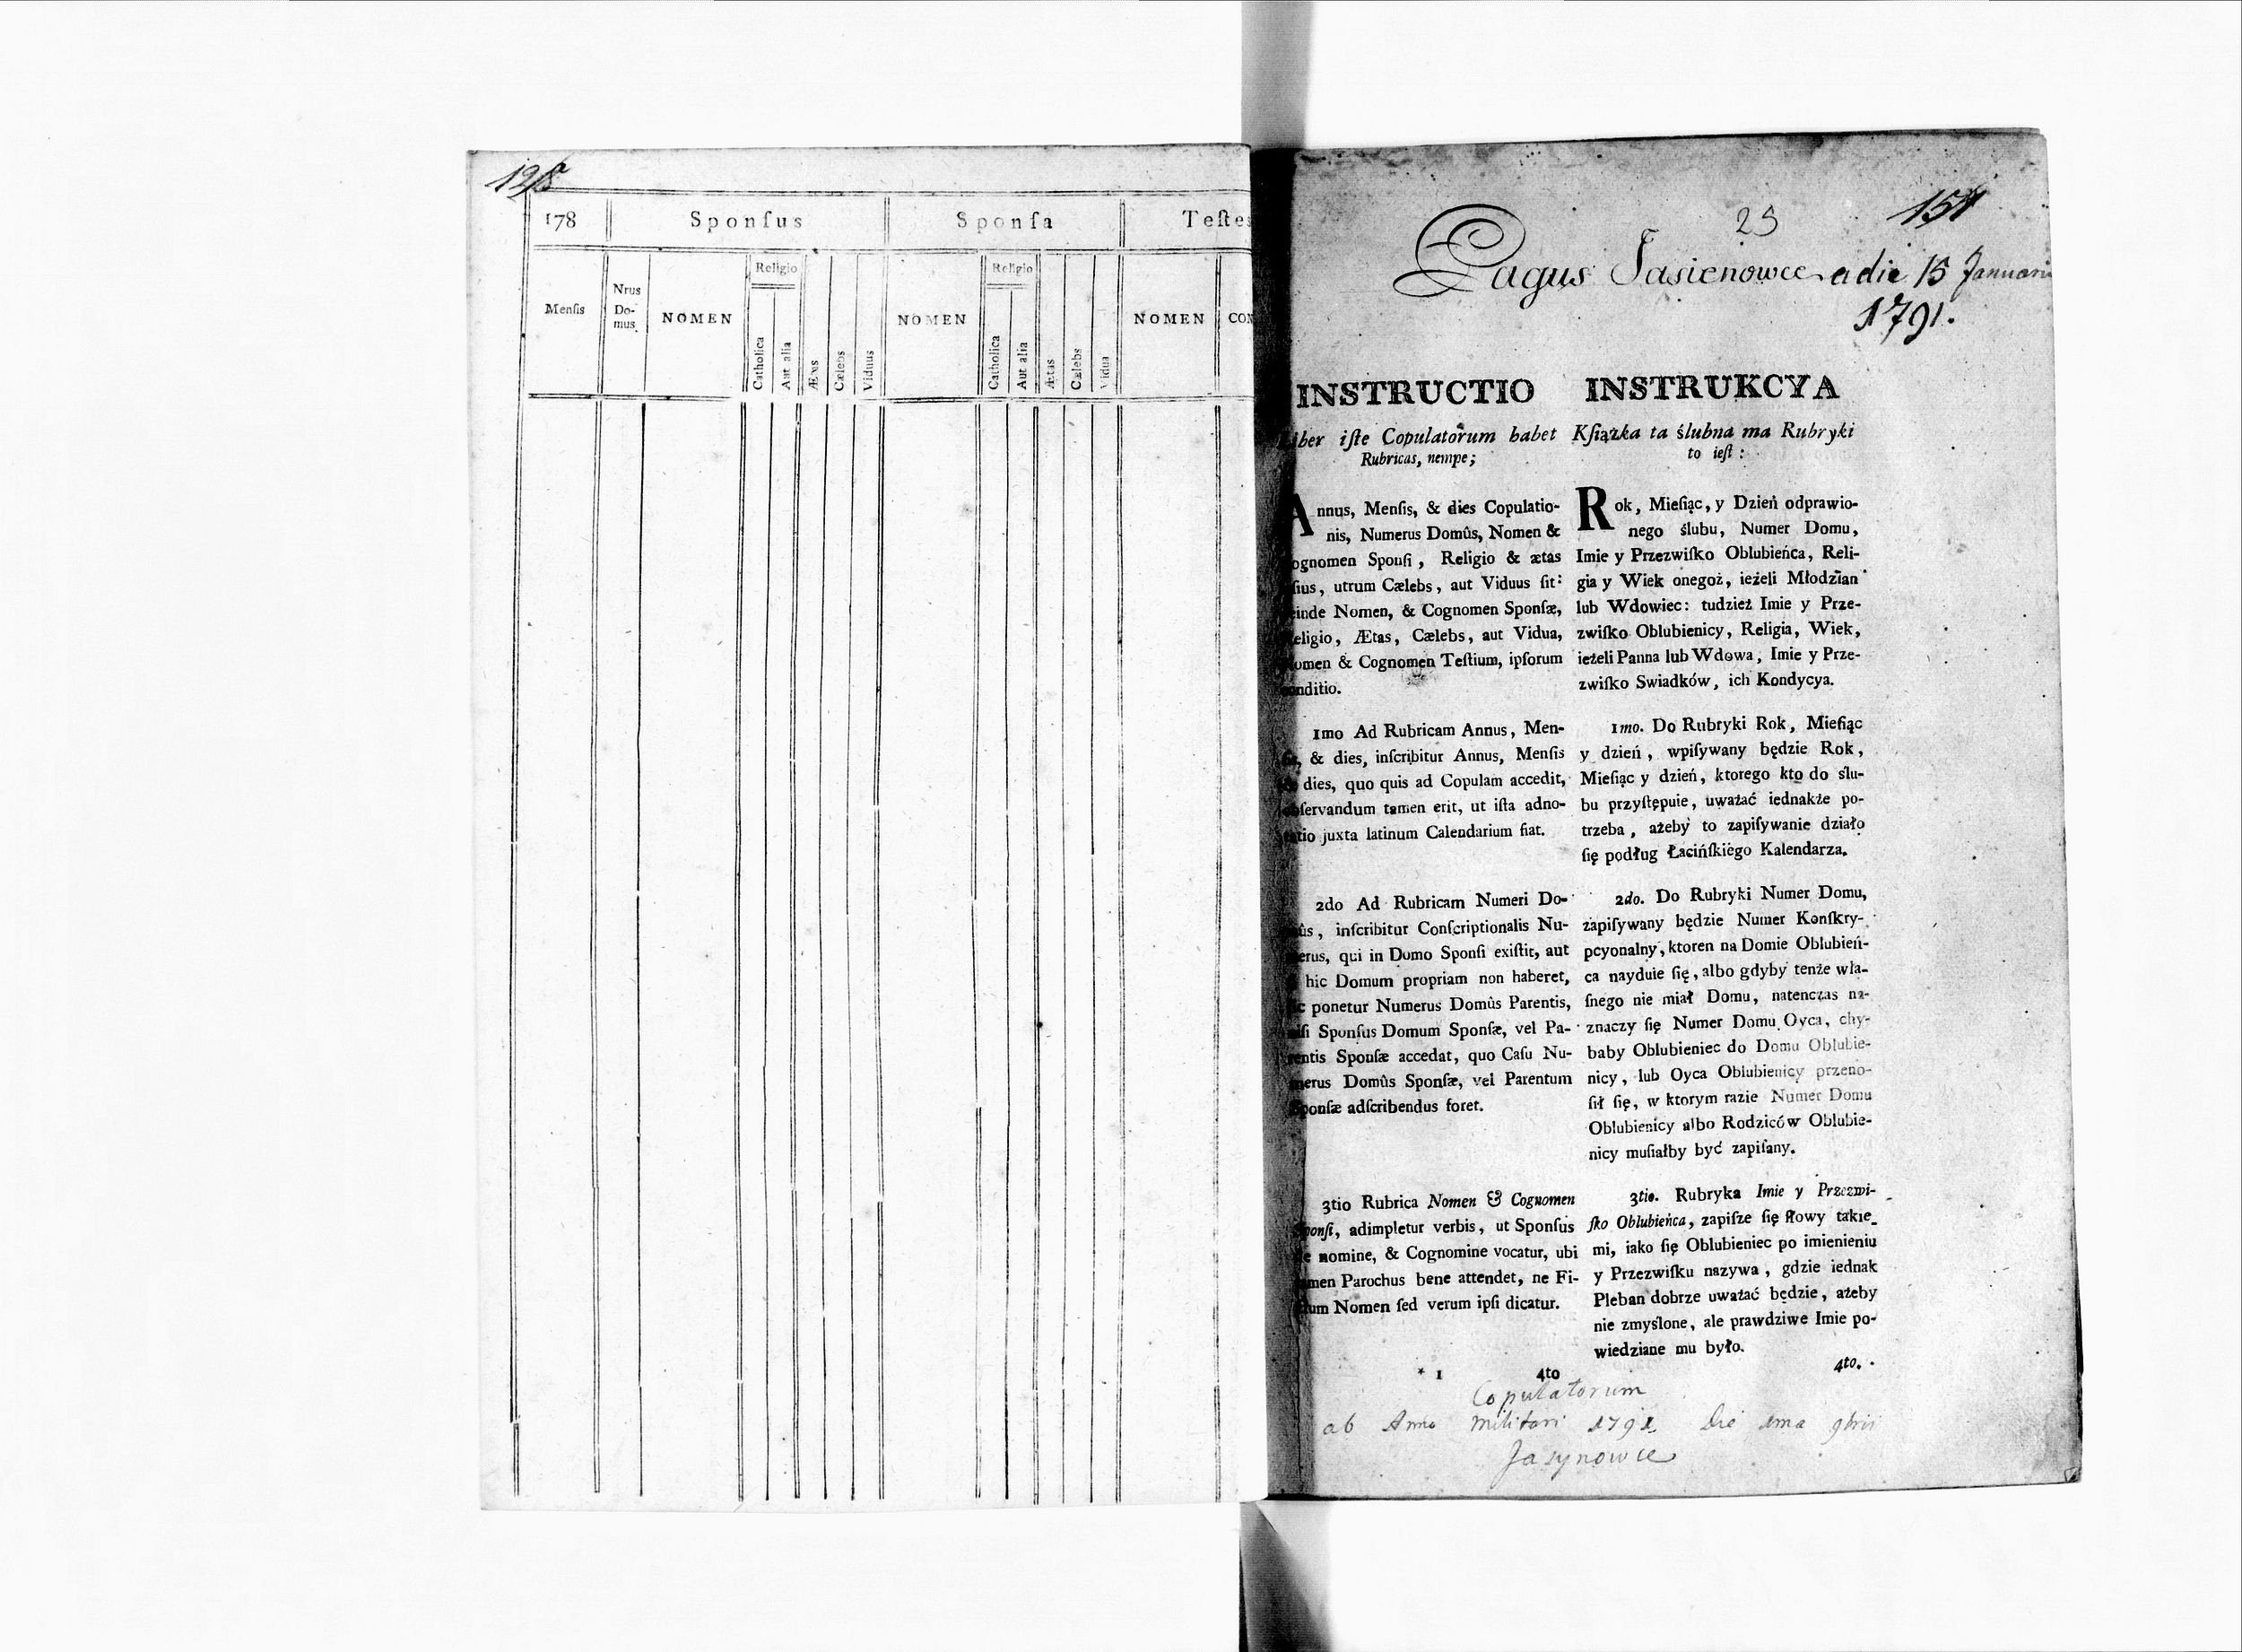 178 Sponſus Sponſa Teſtes
Religio Religio
Menſis Nrus Do-mus NOMEN Catholica Aut alia Ætas Cælebs Viduus NOMEN Catholica Aut alia Ætas Cælebs Vidua NOMEN CON
25
Pagus Jasienowce a die 15 Januarii
1791.
INSTRUCTIO
iber iſte Copulatorum habet
Rubricas, nempe;
Annus, Menſis, & dies Copulatio-
nis, Numerus Domûs, Nomen &
ognomen Sponſi, Religio & ætas
ſius, utrum Cælebs, aut Viduus ſit:
einde Nomen, & Cognomen Sponſæ,
eligio, Ætas, Cælebs, aut Vidua,
omen & Cognomen Teſtium, ipſorum
onditio.
1mo Ad Rubricam Annus, Men-
& dies, inſcribitur Annus, Menſis
dies, quo quis ad Copulam accedit,
bſervandum tamen erit, ut iſta adno-
tio juxta latinum Calendarium fiat.
2do Ad Rubricam Numeri Do-
ûs, inſcribitur Conſcriptionalis Nu-
erus, qui in Domo Sponſi exiſtit, aut
hic Domum propriam non haberet,
c ponetur Numerus Domûs Parentis,
iſi Sponſus Domum Sponſæ, vel Pa-
entis Sponſæ accedat, quo Caſu Nu-
merus Domûs Sponſæ, vel Parentum
Sponſæ adſcribendus foret.
3tio Rubrica Nomen & Cognomen
Sponſi, adimpletur verbis, ut Sponſus
nomine, & Cognomine vocatur, ubi
men Parochus bene attendet, ne Fi-
um Nomen ſed verum ipſi dicatur.
* 1 4to
INSTRUKCYA
Kſiązka ta ślubna ma Rubryki
to ieſt:
Rok, Mieſiąc, y Dzień odprawio-
nego ślubu, Numer Domu,
Imie y Przezwiſko Oblubieńca, Reli-
gia y Wiek onegoż, ieżeli Młodzian
lub Wdowiec: tudzież Imie y Prze-
zwiſko Oblubienicy, Religia, Wiek,
ieżeli Panna lub Wdowa, Imie y Prze-
zwiſko Swiadków, ich Kondycya.
1mo. Do Rubryki Rok, Mieſiąc
y dzień, wpiſywany będzie Rok,
Mieſiąc y dzień, ktorego kto do ślu-
bu przyſtępuie, uważać iednakże po-
trzeba, ażeby to zapiſywanie działo
ſię podług Łacińſkiego Kalendarza.
2do. Do Rubryki Numer Domu,
zapiſywany będzie Numer Konſkry-
pcyonalny, ktoren na Domie Oblubień-
ca nayduie ſię, albo gdyby tenże wła-
ſnego nie miał Domu, natenczas na-
znaczy ſię Numer Domu Oyca, chy-
baby Oblubieniec do Domu Oblubie-
nicy, lub Oyca Oblubienicy przeno-
ſił ſię, w ktorym razie Numer Domu
Oblubienicy albo Rodziców Oblubie-
nicy muſiałby być zapiſany.
3tio. Rubryka Imie y Przezwi-
ſko Oblubieńca, zapiſze ſię ſłowy takie-
mi, iako ſię Oblubieniec po imienieniu
y Przezwiſku nazywa, gdzie iednak
Pleban dobrze uważać będzie, ażeby
nie zmyślone, ale prawdziwe Imie po-
wiedziane mu było.
4to.
Copulatorum
ab Anno Militari 1791 Die 1ma 9bris
Jasynowce